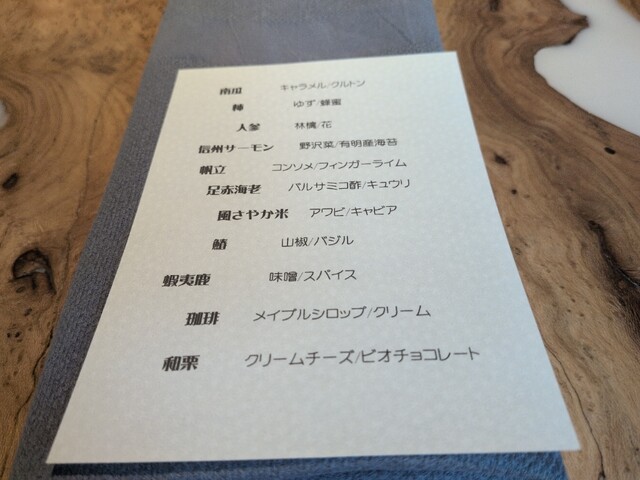 南瓜 キャラメル/クルトン
柿 ゆず/蜂蜜
人参 林檎/花
信州サーモン 野沢菜/有明産海苔
帆立 コンソメ/フィンガーライム
足赤海老 バルサミコ酢/キュウリ
風さやか米 アワビ/キャビア
鰆 山椒/バジル
蝦夷鹿 味噌/スパイス
珈琲 メイプルシロップ/クリーム
和栗 クリームチーズ/ビオチョコレート